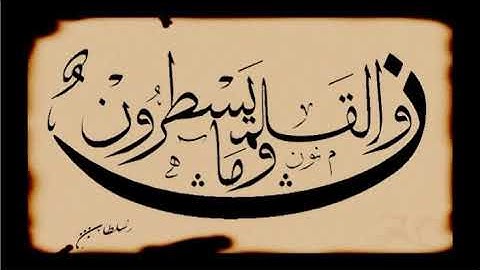 ن والقلم وما يسطرون
م نون